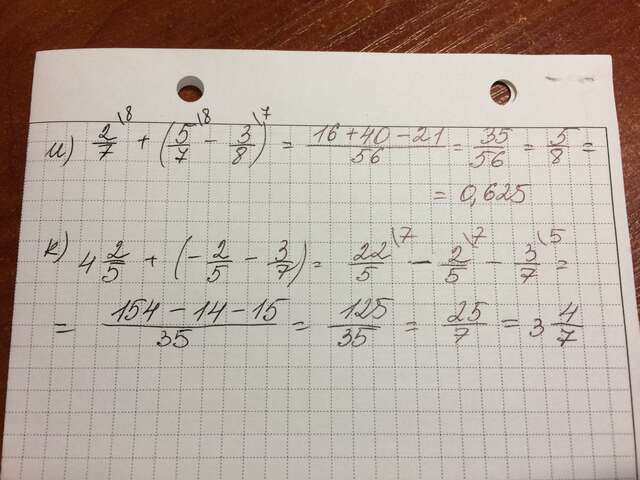 и) 2/7 \8 + (5/7 \8 - 3/8) \7 = 16 + 40 - 21/56 = 35/56 = 5/8 =
= 0,625
к) 4 2/5 + (- 2/5 - 3/7) = 22/5 \7 - 2/5 \7 - 3/7 \5 =
= 154 - 14 - 15/35 = 125/35 = 25/7 = 3 4/7